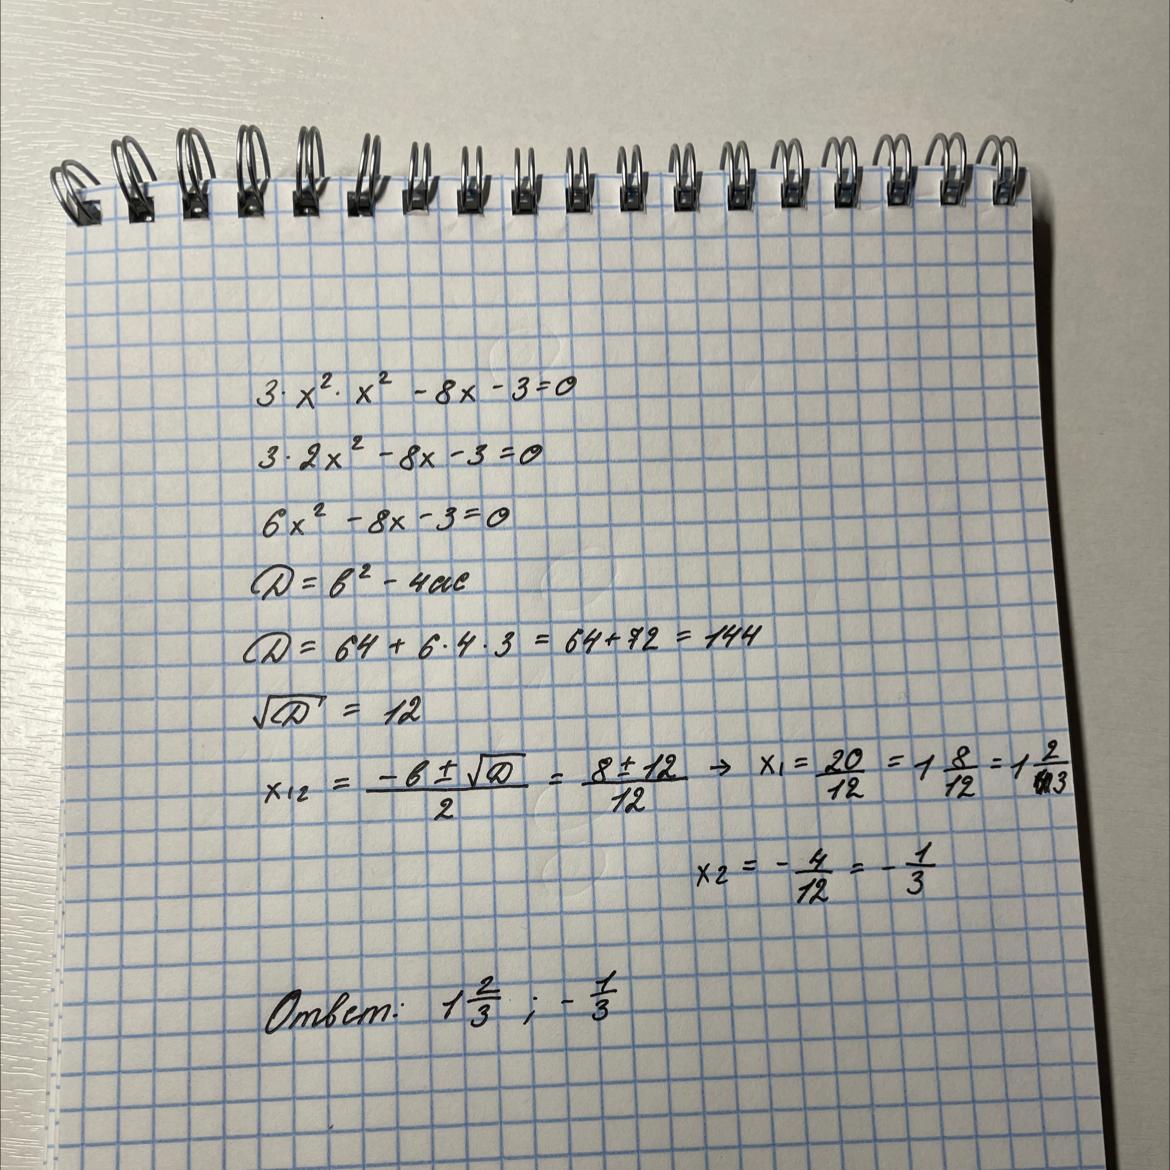 3·x²·x² - 8x - 3 = 0
3·2x² - 8x - 3 = 0
6x² - 8x - 3 = 0
D = b² - 4ac
D = 64 + 6·4·3 = 64 + 72 = 144
√D = 12
x₁₂ = (-b ± √D)/2 = (8 ± 12)/12 → x₁ = 20/12 = 1 8/12 = 1 2/3
x₂ = - 4/12 = - 1/3
Ответ: 1 2/3 ; - 1/3